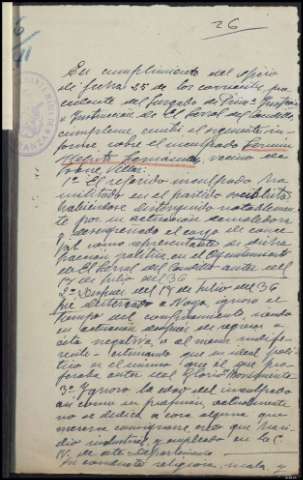 26
En cumplimiento del oficio
de fecha 25 de los corrientes, pro
cedente del Juzgado de Primª Instancia
e Instrucción de El Ferrol del Caudillo
cumpleme emitir el siguiente in-
forme sobre el inculpado Fermin
vecino de
1º El referido inculpado ha
militado en el partido
habiendose distinguido notablemen
te por su actuación
desempeñado el cargo de conce
jal como representante de dicha
en el Ayuntamiento
de El Ferrol del Caudillo antes del
18 de Julio del 36
2º Despues del 18 de Julio del 36
fue desterrado a Noya, ignoro el
tiempo del confinamiento, siendo
su actuación despues de regresar a
esta negativa, o al menos indife
rente estimando que su ideal poli
tico es el mismo que el que pro
fesaba antes del Glorioso Movimiento
3º Ignoro la edad del inculpado
asi como su profesion, actualmente
no se dedica a cosa alguna que
merezca consignarse otro que ha si
do industrial, y empleado en la C
N. de esta
Su conducta religiosa, mala, y